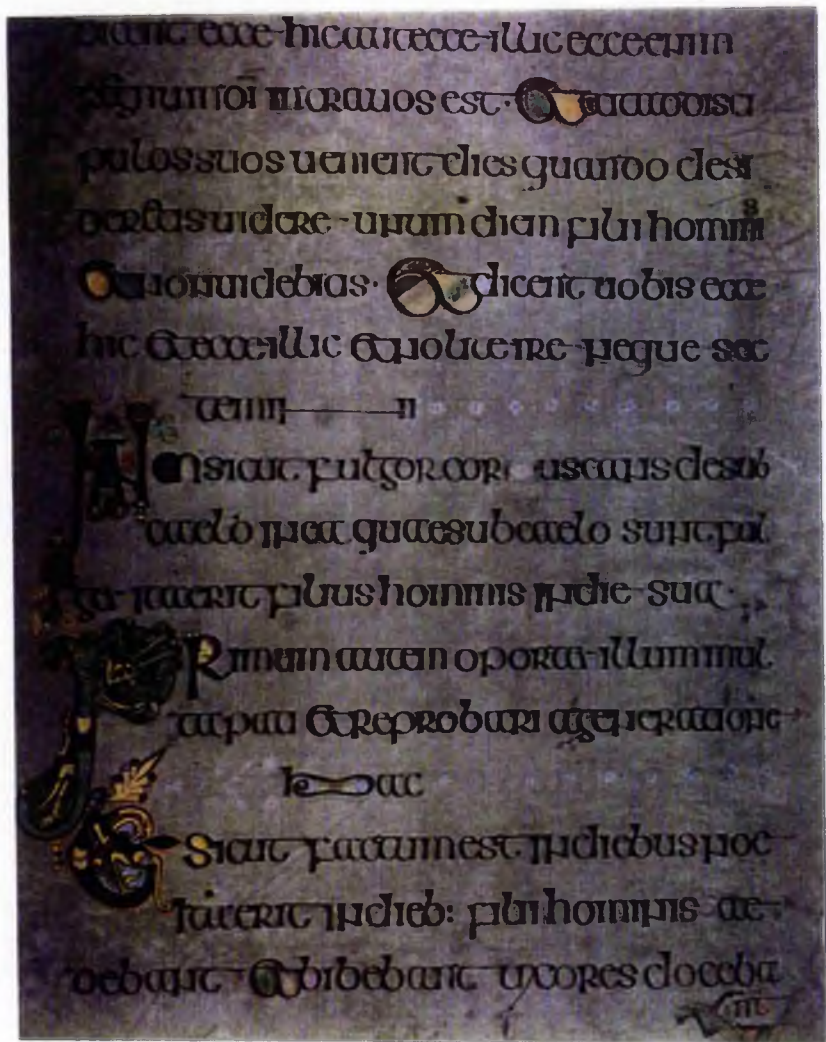 dicent ecce hic aut ecce illic ecce enim
regnum dī intra uos est · Et ait ad disci
pulos suos uenient dies quando desi
deretis uidere unum diem filii hominis
Et non uidebitis · Et dicent uobis ecce
hic Et ecce illic Et nolite ire neque sec
temini
Nam sicut fulgor coruscans de sub
caelo in ea quae sub caelo sunt ful
ita erit filius hominis in die sua ·
Primum autem oportet illum mul
ta pati Et reprobari a generatione
hac
Et Sicut factum est in diebus noe
ita erit in dieb: filii hominis ae
debant Et bibebant uxores doceba
nt